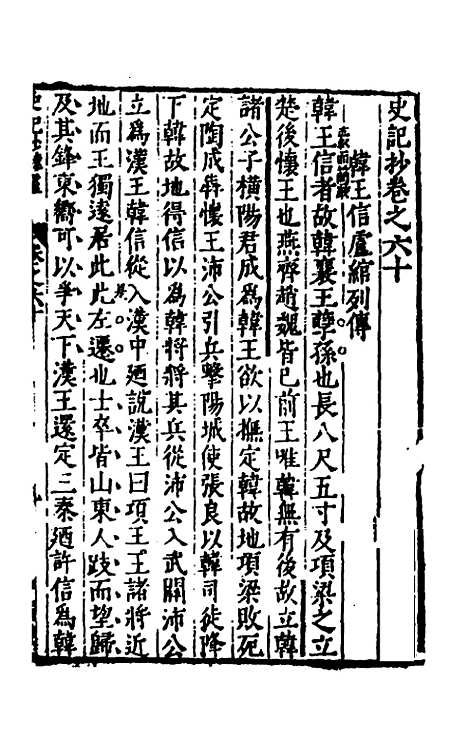 史記抄卷之六十
韓王信盧綰列傳
韓王信者故韓襄王孽孫也長八尺五寸及項梁之立
楚後懷王也燕齊趙魏皆已前王唯韓無有後故立韓
諸公子橫陽君成爲韓王欲以撫定韓故地項梁敗死
定陶成犇懷王沛公引兵擊陽城使張良以韓司徒降
下韓故地得信以爲韓將將其兵從沛公入武關沛公
立爲漢王韓信從入漢中廼說漢王曰項王王諸將近
地而王獨遠居此此左遷也士卒皆山東人跂而望歸
及其鋒東嚮可以爭天下漢王還定三秦廼許信爲韓